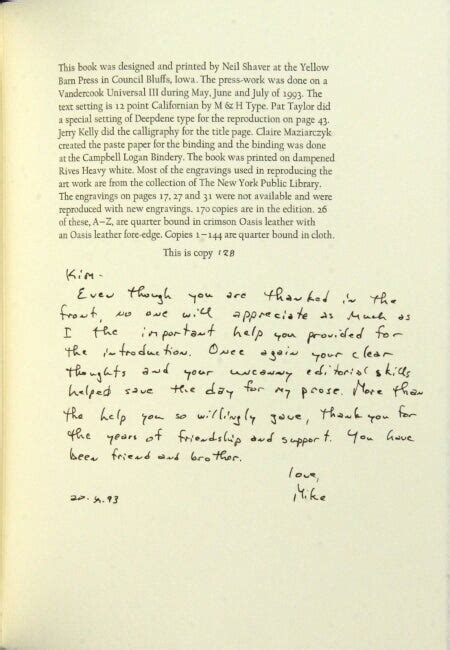 This book was designed and printed by Neil Shaver at the Yellow
Barn Press in Council Bluffs, Iowa. The press-work was done on a
Vandercook Universal III during May, June and July of 1993. The
text setting is 12 point Californian by M & H Type. Pat Taylor did
a special setting of Deepdene type for the reproduction on page 43.
Jerry Kelly did the calligraphy for the title page. Claire Maziarczyk
created the paste paper for the binding and the binding was done
at the Campbell Logan Bindery. The book was printed on dampened
Rives Heavy white. Most of the engravings used in reproducing the
art work are from the collection of The New York Public Library.
The engravings on pages 17, 27 and 31 were not available and were
reproduced with new engravings. 170 copies are in the edition. 26
of these, A–Z, are quarter bound in crimson Oasis leather with
an Oasis leather fore-edge. Copies 1–144 are quarter bound in cloth.
This is copy 128
Kim-
Even though you are thanked in the
front, no one will appreciate as much as
I the important help you provided for
the introduction. Once again your clear
thoughts and your uncanny editorial skills
helped save the day for my prose. More than
the help you so willingly gave, thank you for
the years of friendship and support. You have
been friend and brother.
love,
Mike